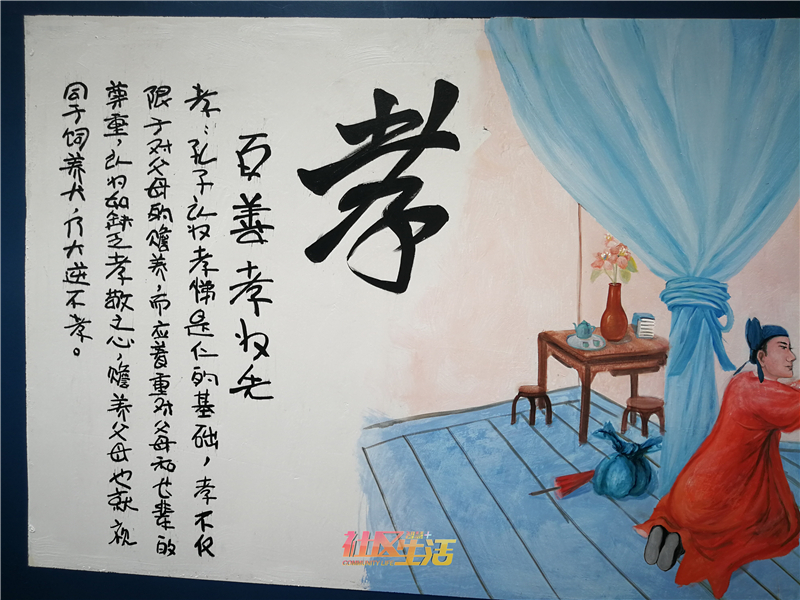 孝
百善孝为先
孝：孔子认为孝悌是仁的基础，孝不仅
限于对父母的赡养，而应着重对父母和长辈的
尊重，认为如缺乏孝敬之心，赡养父母也就视
同于饲养犬，乃大逆不孝。
社区生活
COMMUNITY LIFE